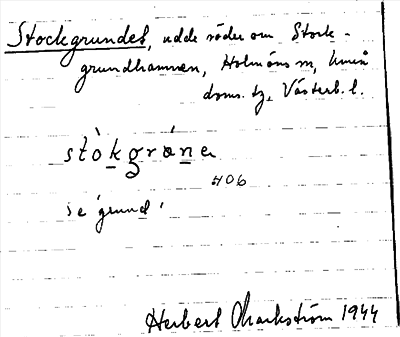 Stockgrundet, udde söder om Stock-
grundhamnen, Holmöns sn, Umeå
doms. tg, Västerb. l.
stòkgrøna
406
se 'grund'
Herbert Markström 1944